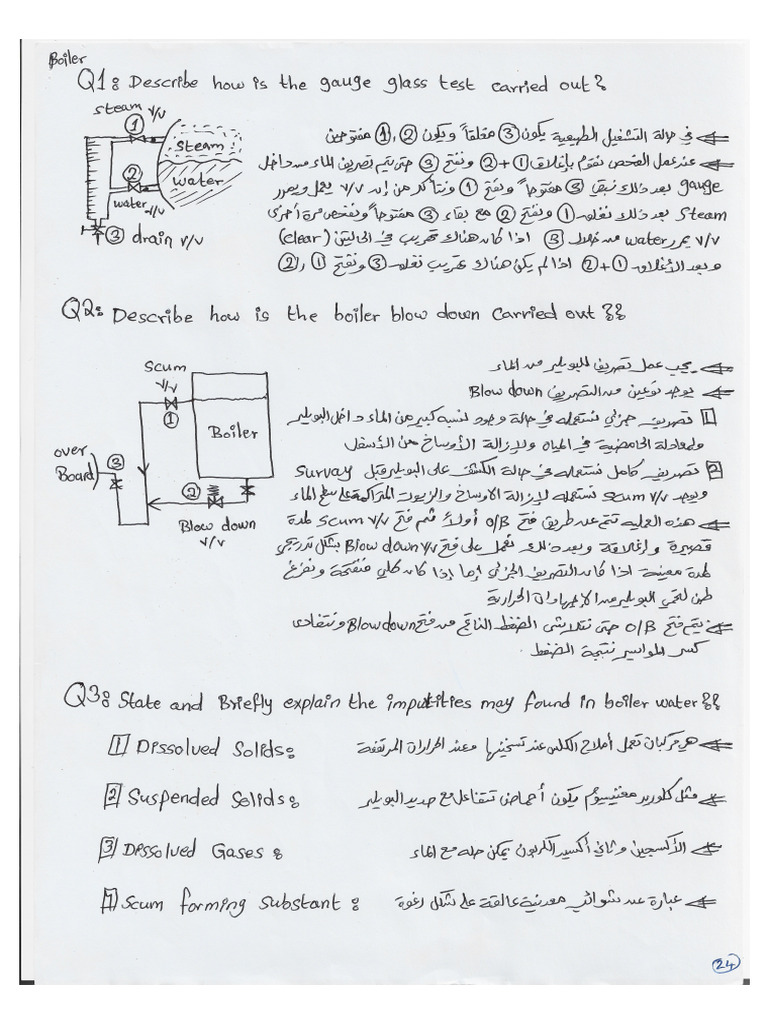 Boiler
Q1: Describe how is the gauge glass test carried out?
steam v/v
① steam
② water
water v/v
③ drain v/v
⇐ في حالة التشغيل الطبيعية يكون ③ مغلقاً ويكون ②,① مفتوحين
⇐ عند عمل الفحص نقوم بإغلاق ①+② ونفتح ③ حتى يتم تصريف الماء من داخل
gauge بعد ذلك نبقي ③ مفتوحاً ونفتح ① ونتأكد من إن v/v يعمل ويمرر
steam بعد ذلك نغلق ① ونفتح ② مع بقاء ③ مفتوحاً ونفحص مرة أخرى
v/v يمرر water من خلال ③ اذا كان هناك تهريب في الحالتين (clear)
وبعد الأغلاق ①+② اذا لم يكن هناك تهريب نغلق ③ ونفتح ① و ②
Q2: Describe how is the boiler blow down carried out??
Scum v/v
①
Boiler
over Board
③
②
Blow down v/v
⇐ يجب عمل تصريف للبويلر من الماء
⇐ يوجد نوعين من التصريف Blow down
1 تصريف جزئي نستعمله في حالة وجود نسبه كبير من الماء داخل البويلر
ولمعادلة الحامضية في المياه ولإزالة الأوساخ من الأسفل
2 تصريف كامل نستعمله في حالة الكشف على البويلر قبل survay
ويوجد scum v/v نستعمله لإزالة الاوساخ والزيوت المتراكمة على سطح الماء
⇐ هذه العمليه تتم عن طريق فتح O/B أولاً ثم فتح scum v/v لمدة
قصيرة وإغلاقة وبعد ذلك نعمل على فتح Blow down v/v بشكل تدريجي
لمدة معينة اذا كان التصريف الجزئي إما إذا كان كلي فنفتحة ونفرغ
البويلر من الاجهادات الحرارية
⇐ يتم فتح O/B حتى نتلاشى الضغط الناتج من فتح Blow down ونتفادى
كسر المواسير نتيجة الضغط.
Q3: State and Briefly explain the impurities may found in boiler water??
1 Dissolved Solids: ⇐ هي مركبات تعمل أملاح الكلس عند تسخينها وعند الحرارات المرتفعة
2 Suspended Solids: ⇐ مثل كلوريد مغنيسيوم يكون أحماض تتفاعل مع حديد البويلر
3 Dissolved Gases: ⇐ الأكسجين وثاني أكسيد الكربون يمكن حله مع الماء
1 Scum forming substant: ⇐ عبارة عن شوائب معدنية عالقة على شكل رغوة
24